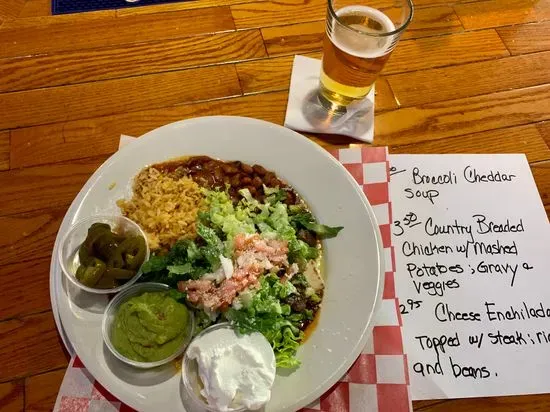 Broccoli Cheddar
Soup
3 50 Country Breaded
Chicken w/ Mashed
Potatoes; Gravy &
Veggies
Cheese Enchilada
Topped w/ Steak; ri
and beans.